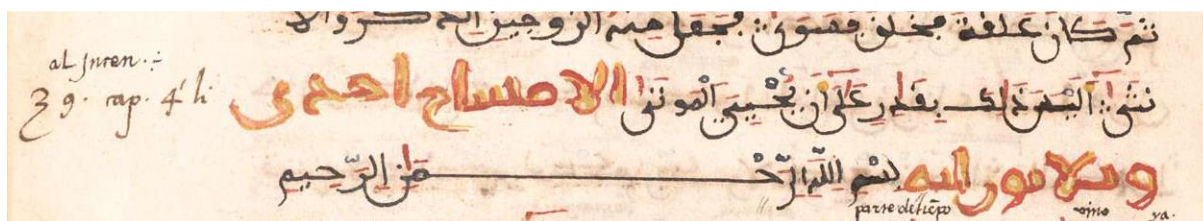 ثم كان علقة فخلق فسوى فجعل منه الزوجين الذكر والا
al Jncen
نثى اليس ذلك بقدر على ان يحيي الموتى الانسان احدى
cap. 4 li
وثلاثون ايه بسم الله الرحمن الرحيم
parte de tiẽpo vino ya.